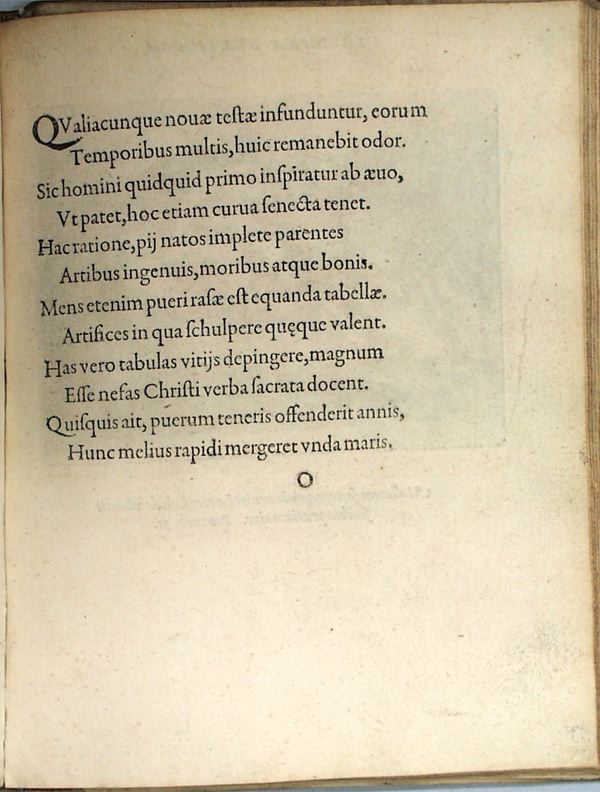 QValiacunque nouæ testæ infunduntur, eorum
Temporibus multis, huic remanebit odor.
Sic homini quidquid primo inspiratur ab æuo,
Vt patet, hoc etiam curua senecta tenet.
Hac ratione, pij natos implete parentes
Artibus ingenuis, moribus atque bonis.
Mens etenim pueri rasæ est equanda tabellæ.
Artifices in qua schulpere quęque valent.
Has vero tabulas vitijs depingere, magnum
Esse nefas Christi verba sacrata docent.
Quisquis ait, puerum teneris offenderit annis,
Hunc melius rapidi mergeret vnda maris.
O